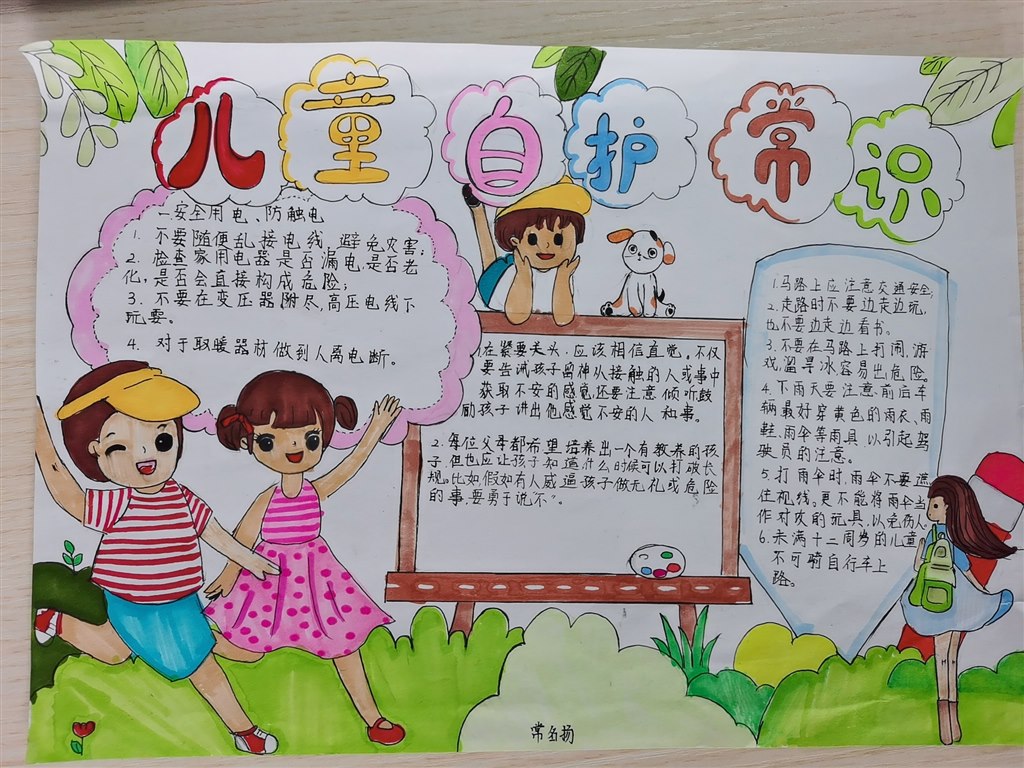 儿童自护常识
一安全用电、防触电
1. 不要随便乱接电线,避免灾害;
2. 检查家用电器是否漏电,是否老
化,是否会直接构成危险;
3. 不要在变压器附近高压电线下
玩耍。
4. 对于取暖器材做到人离电断。
在紧要关头,应该相信直觉。不仅
要告诫孩子留神从接触的人或事中
获取不安的感觉还要注意倾听鼓
励孩子讲出他感觉不安的人和事。
2. 每位父母都希望培养出一个有教养的孩
子,但也应让孩子知道什么时候可以打破长
规。比如,假如有人威逼孩子做无礼或危险
的事,要勇于说“不”。
1.马路上应注意交通安全;
2.走路时不要边走边玩,
也不要边走边看书。
3.不要在马路上打闹,游
戏,溜旱冰容易出危险。
4.下雨天要注意前后车
辆最好穿黄色的雨衣、雨
鞋、雨伞等雨具,以引起驾
驶员的注意。
5.打雨伞时,雨伞不要遮
住视线。更不能将雨伞当
作对友的玩具,以免伤人
6.未满十二周岁的儿童
不可骑自行车上
路。